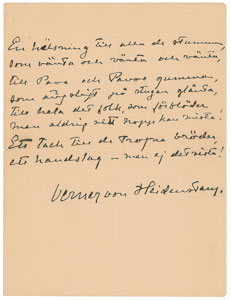 En hälsning till alla de stumma,
som vänta och vänta och vänta,
till Pavo och Pavos gumma,
som ängsligt på stugan glänta,
till hela det folk, som förblöder
men aldrig sitt hopp kan mista.
Ett tack till de trogna bröder,
ett handslag – men ej det sista!
Verner von Heidenstam.